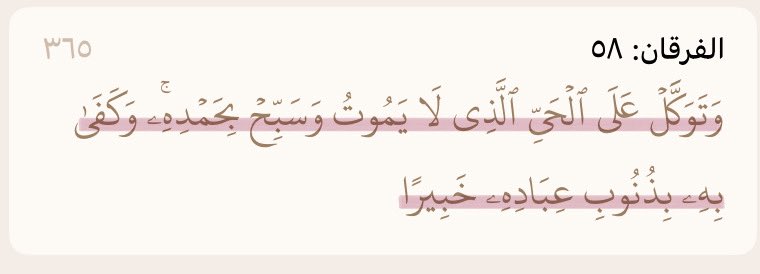 الفرقان: ٥٨
٣٦٥
وَتَوَكَّلۡ عَلَى ٱلۡحَيِّ ٱلَّذِى لَا يَمُوتُ وَسَبِّحۡ بِحَمۡدِهِۦۚ وَكَفَىٰ
بِهِۦ بِذُنُوبِ عِبَادِهِۦ خَبِيرًا